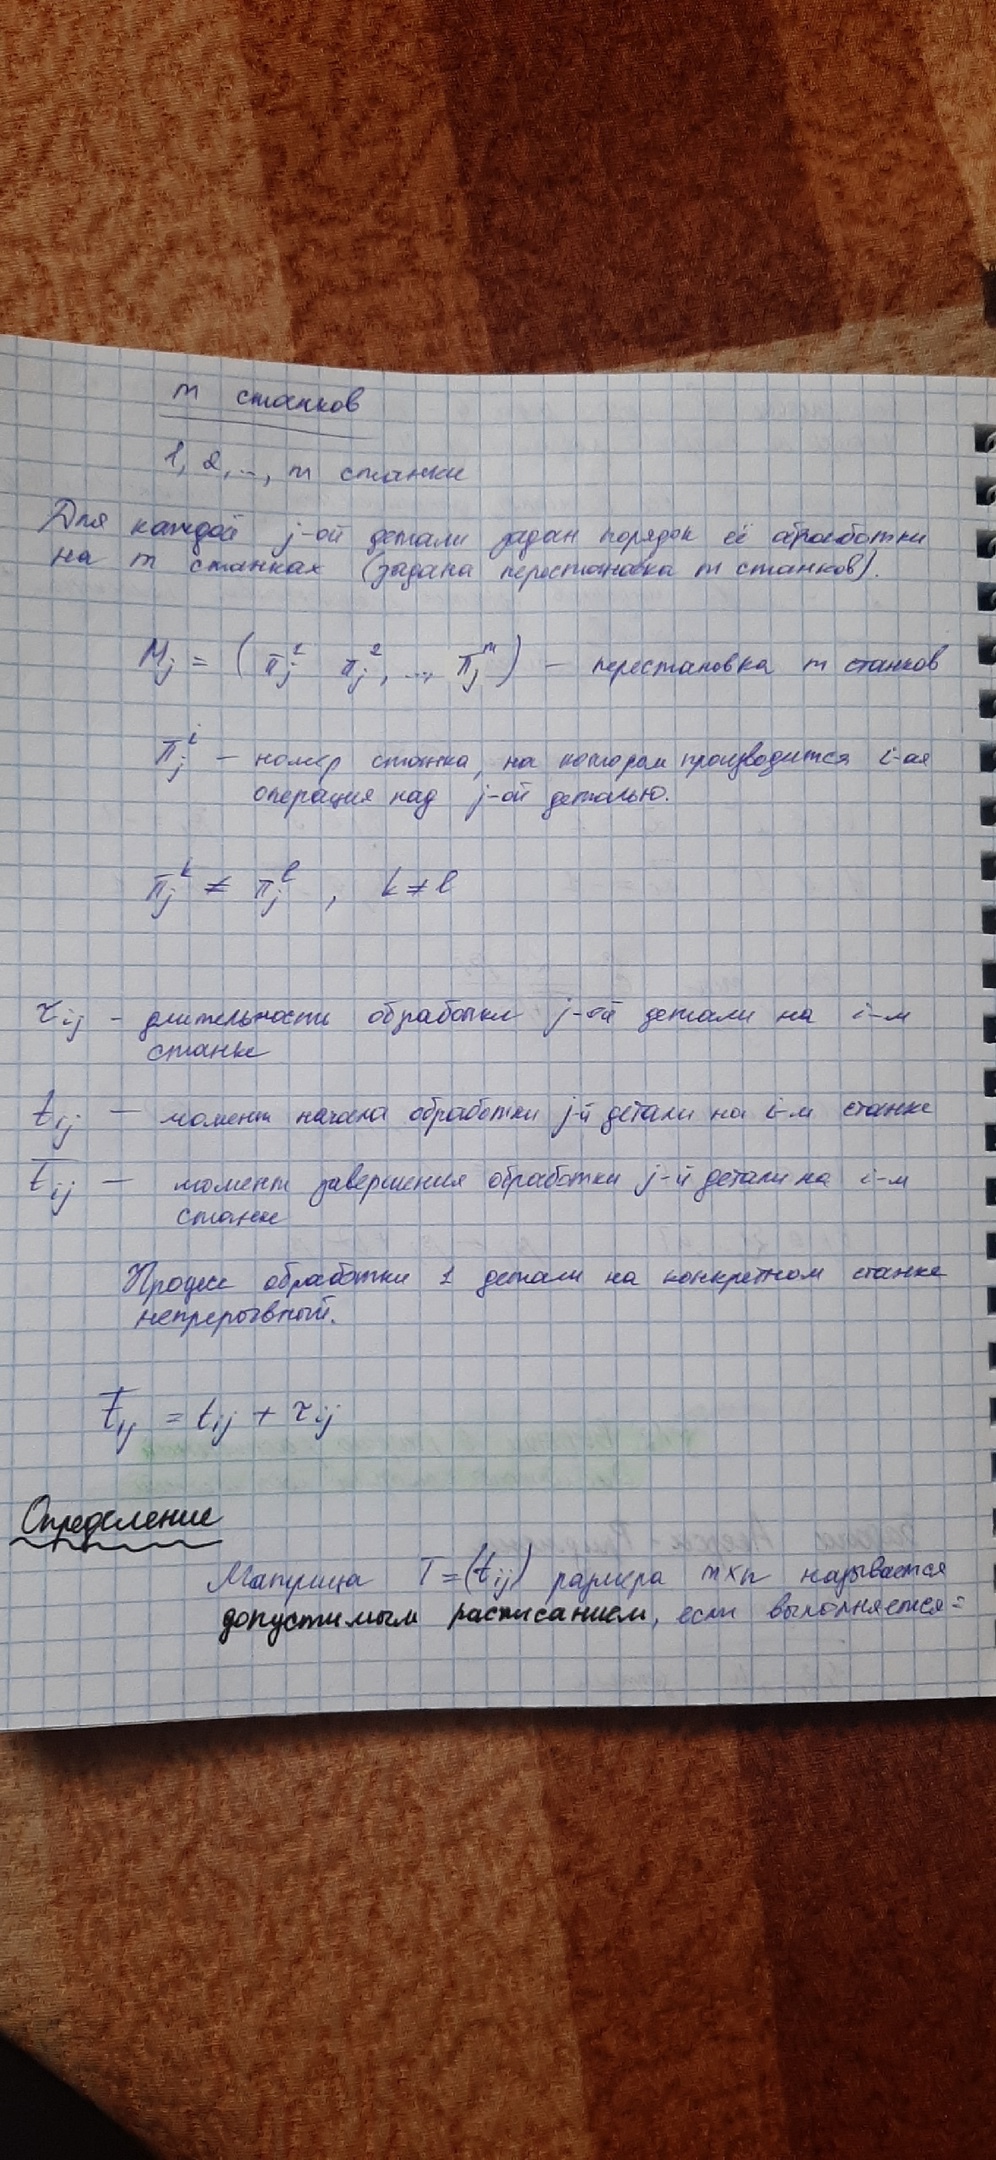 m станков
1, 2, ..., m станки
Для каждой j-ой детали задан порядок её обработки
на m станках (задана перестановка m станков).
Mj = (πj¹ πj², ..., πjᵐ) – перестановка m станков
πjⁱ – номер станка, на котором производится i-ая
операция над j-ой деталью.
πjᵏ ≠ πjˡ , k ≠ l
τij – длительность обработки j-ой детали на i-м
станке
tij – момент начала обработки j-й детали на i-м станке
t̅ij – момент завершения обработки j-й детали на i-м
станке
Процесс обработки 1 детали на конкретном станке
непрерывный.
t̅ij = tij + τij
Определение
Матрица T = (tij) размера m×n называется
допустимым расписанием, если выполняется: